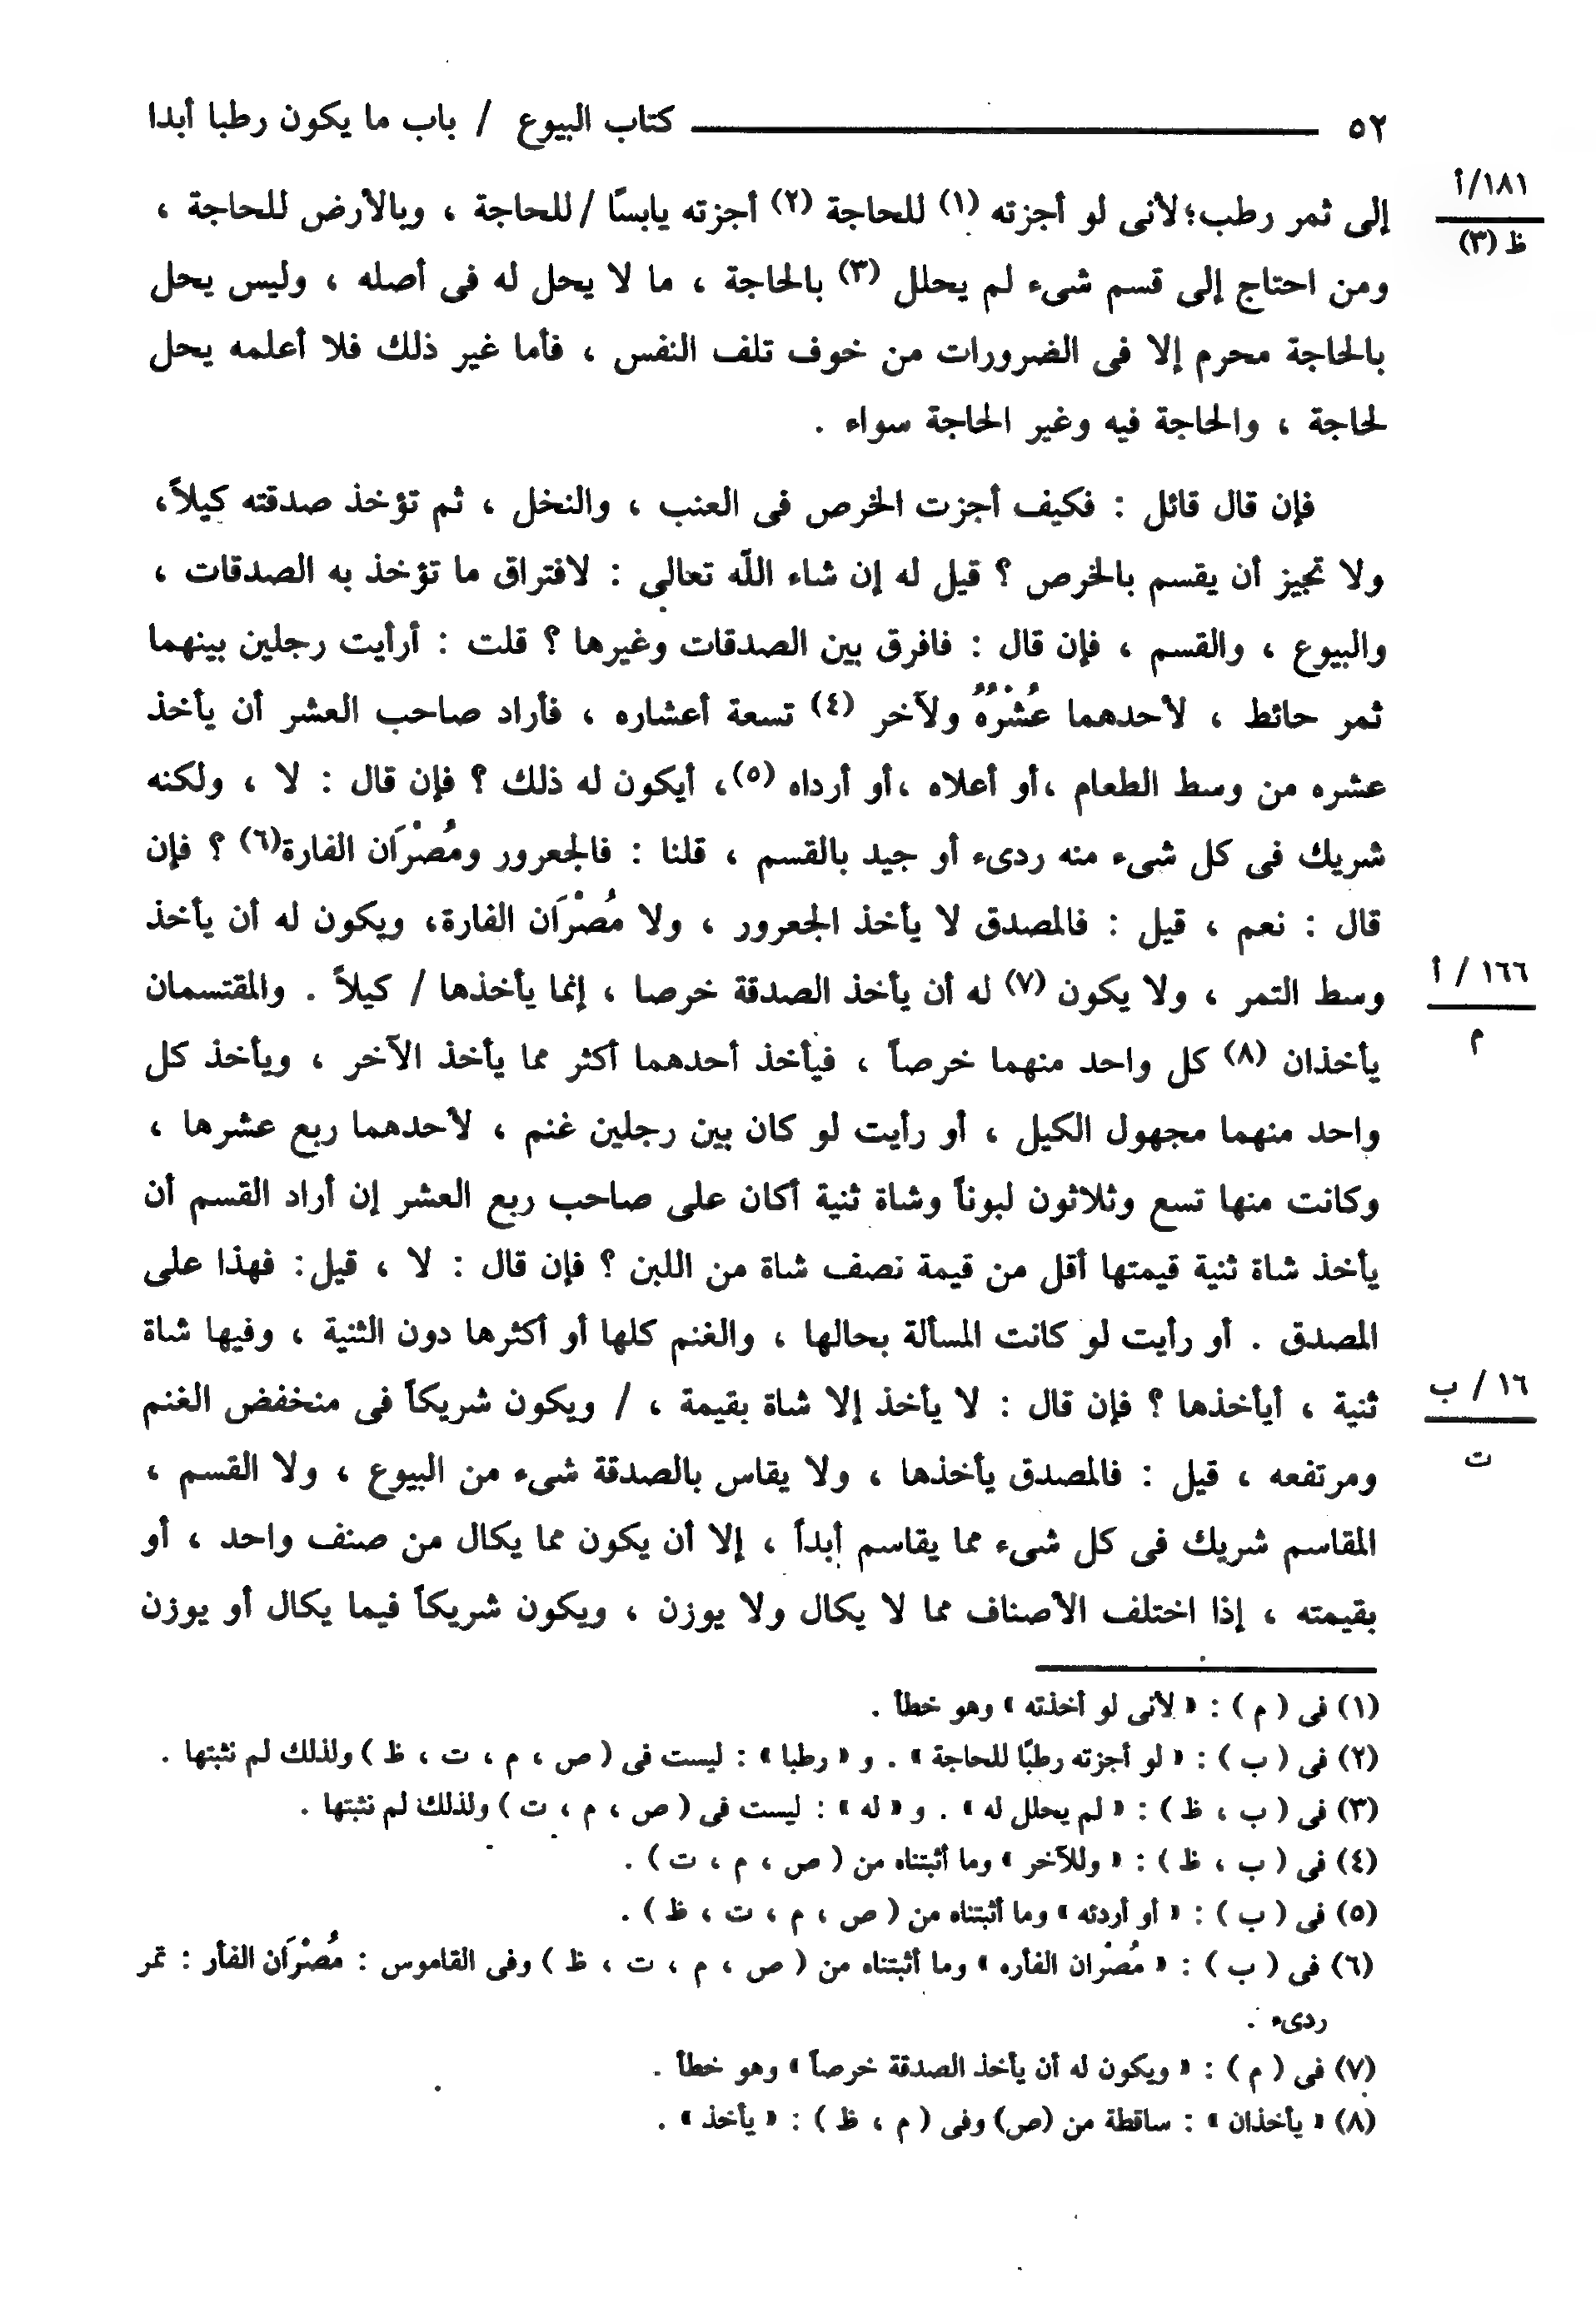 ٥٢ كتاب البيوع / باب ما يكون رطبا أبدا
١٨١/أ
ظ (٣)
إلى ثمر رطب؛ لأنى لو أجزته (١) للحاجة (٢) أجزته يابسًا / للحاجة ، وبالأرض للحاجة ،
ومن احتاج إلى قسم شىء لم يحلل (٣) بالحاجة ، ما لا يحل له فى أصله ، وليس يحل
بالحاجة محرم إلا فى الضرورات من خوف تلف النفس ، فأما غير ذلك فلا أعلمه يحل
لحاجة ، والحاجة فيه وغير الحاجة سواء .
فإن قال قائل : فكيف أجزت الخرص فى العنب ، والنخل ، ثم تؤخذ صدقته كيلاً،
ولا تجيز أن يقسم بالخرص ؟ قيل له إن شاء اللّه تعالى : لافتراق ما تؤخذ به الصدقات ،
والبيوع ، والقسم ، فإن قال : فافرق بين الصدقات وغيرها ؟ قلت : أرأيت رجلين بينهما
ثمر حائط ، لأحدهما عُشْرُهُ ولآخر (٤) تسعة أعشاره ، فأراد صاحب العشر أن يأخذ
عشره من وسط الطعام ،أو أعلاه ،أو أرداه (٥)، أيكون له ذلك ؟ فإن قال : لا ، ولكنه
شريك فى كل شىء منه ردىء أو جيد بالقسم ، قلنا : فالجعرور ومُصْرَان الفارة(٦) ؟ فإن
قال : نعم ، قيل : فالمصدق لا يأخذ الجعرور ، ولا مُصْرَان الفارة، ويكون له أن يأخذ
وسط التمر ، ولا يكون (٧) له أن يأخذ الصدقة خرصا ، إنما يأخذها / كيلاً . والمقتسمان
١٦٦ / أ
م
يأخذان (٨) كل واحد منهما خرصاً ، فيأخذ أحدهما أكثر مما يأخذ الآخر ، ويأخذ كل
واحد منهما مجهول الكيل ، أو رأيت لو كان بين رجلين غنم ، لأحدهما ربع عشرها ،
وكانت منها تسع وثلاثون لبوناً وشاة ثنية أكان على صاحب ربع العشر إن أراد القسم أن
يأخذ شاة ثنية قيمتها أقل من قيمة نصف شاة من اللبن ؟ فإن قال : لا ، قيل: فهذا على
المصدق . أو رأيت لو كانت المسألة بحالها ، والغنم كلها أو أكثرها دون الثنية ، وفيها شاة
ثنية ، أيأخذها ؟ فإن قال : لا يأخذ إلا شاة بقيمة ، / ويكون شريكاً فى منخفض الغنم
١٦ / ب
ت
ومرتفعه ، قيل : فالمصدق يأخذها ، ولا يقاس بالصدقة شىء من البيوع ، ولا القسم ،
المقاسم شريك فى كل شىء مما يقاسم أبداً ، إلا أن يكون مما يكال من صنف واحد ، أو
بقيمته ، إذا اختلف الأصناف مما لا يكال ولا يوزن ، ويكون شريكاً فيما يكال أو يوزن
(١) فى ( م ) : « لأنى لو أخذته » وهو خطأ .
(٢) فى ( ب ) : « لو أجزته رطبًا للحاجة » . و « رطبا » : ليست فى ( ص ، م ، ت ، ظ ) ولذلك لم نثبتها .
(٣) فى ( ب ، ظ ) : « لم يحلل له » . و « له » : ليست فى ( ص ، م ، ت ) ولذلك لم نثبتها .
(٤) فى ( ب ، ظ ) : « وللآخر » وما أثبتناه من ( ص ، م ، ت ) .
(٥) فى ( ب ) : « أو أردئه » وما أثبتناه من ( ص ، م ، ت ، ظ ) .
(٦) فى ( ب ) : « مُصْران الفأره » وما أثبتناه من ( ص ، م ، ت ، ظ ) وفى القاموس : مُصْرَان الفأر : تمر
ردىء .
(٧) فى ( م ) : « ويكون له أن يأخذ الصدقة خرصاً » وهو خطأ .
(٨) « يأخذان » : ساقطة من (ص) وفى ( م ، ظ ) : « يأخذ » .